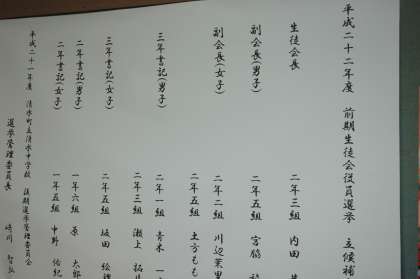 平成二十二年度 前期生徒会役員選挙 立候補
生徒会長 二年三組 内田
副会長(男子) 二年五組 宮脇
副会長(女子) 二年二組 川辺菜
二年五組 土方もも
三年書記(男子) 二年一組 青木 一
二年三組 瀬上 拓
三年書記(女子) 二年五組 坂田 絵
二年書記(男子) 一年六組 原 太郎
二年書記(女子) 一年五組 中野 佑紀
平成二十一年度 清水町立清水中学校 後期選挙管理委員会
選挙管理委員長 時川 智